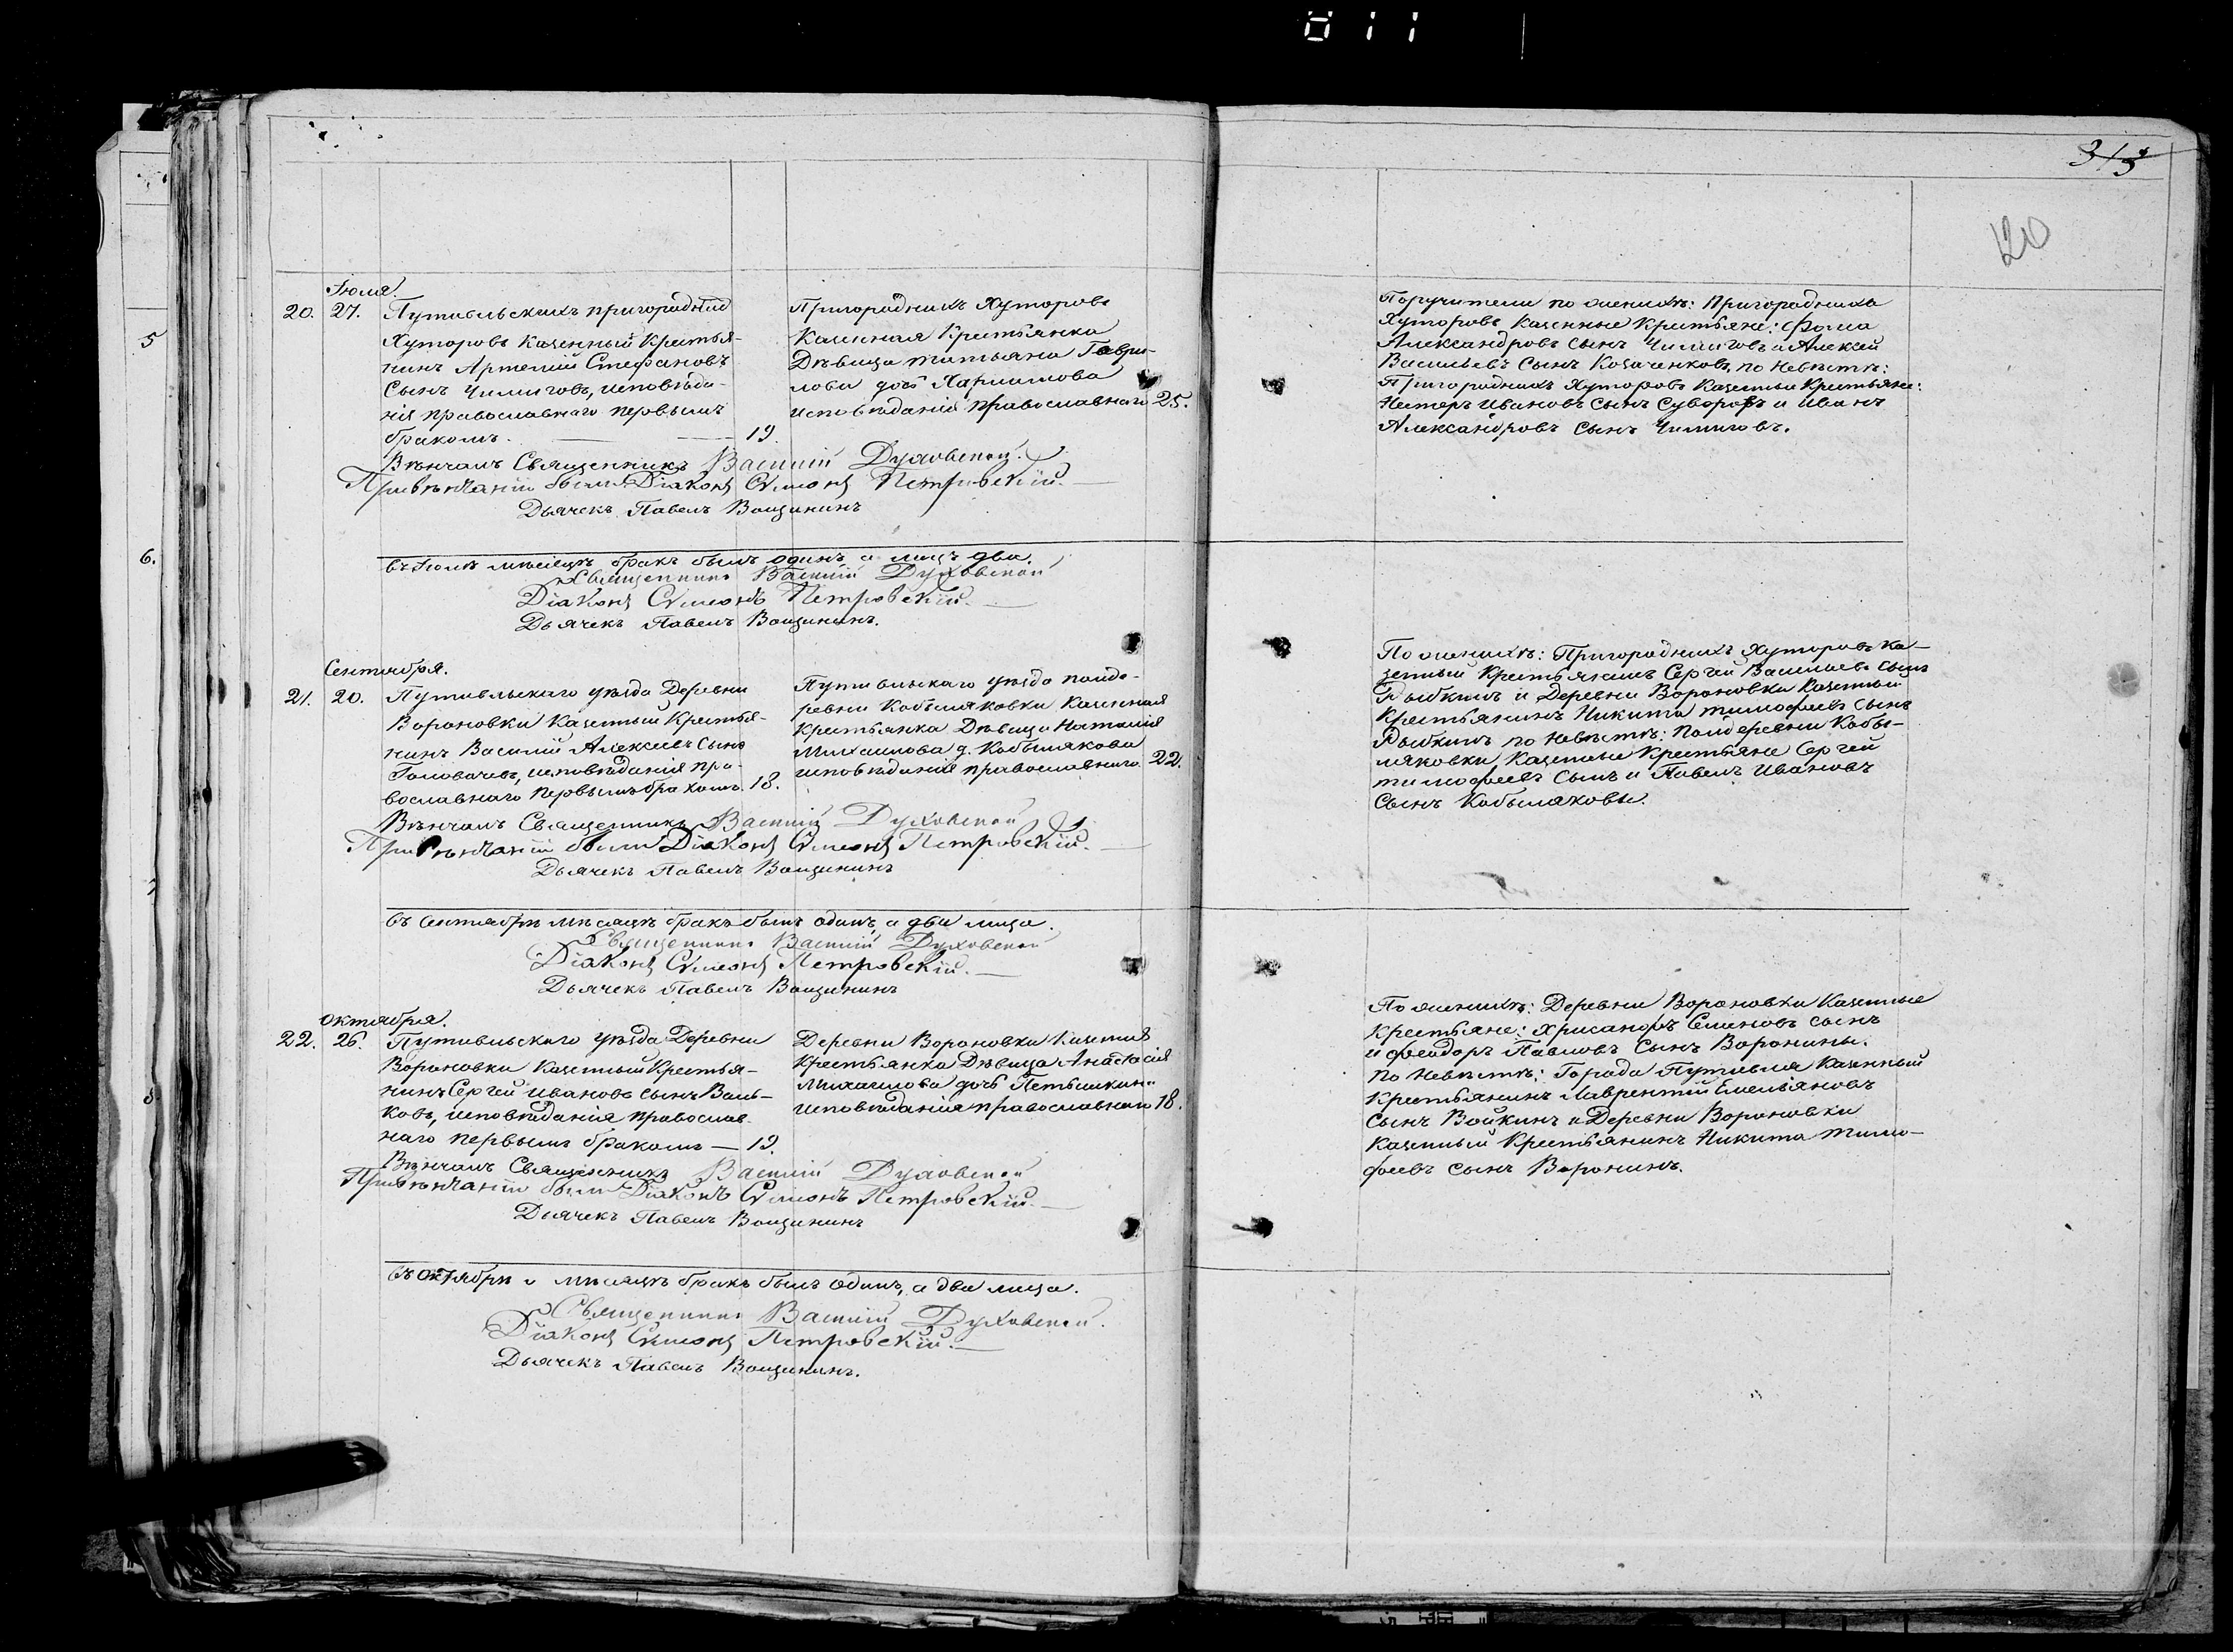 011
313
120
5
6.
7
8
Іюля.
20. 27. Путивльскихъ пригородныхъ
Хуторовъ Казенный Крестья-
нинъ Артемій Стефановъ
Сынъ Чимиговъ, исповѣда-
нія православнаго первымъ
бракомъ. 19.
Пригородныхъ Хуторовъ
Казенная Крестьянка
Дѣвица Татьяна Гаври-
лова дочь
исповѣданія православнаго 25.
Вѣнчалъ Священникъ Василій Духовской.
При вѣнчаніи были Діаконъ Сѵмеонъ Петровскій.
Дьячекъ Павелъ Вощининъ
въ Іюлѣ мѣсяцѣ бракъ былъ одинъ, а лицъ два.
Священникъ Василій Духовской
Діаконъ Сѵмеонъ Петровскій.
Дьячекъ Павелъ Вощининъ.
Сентября.
21. 20. Путивльскаго уѣзда Деревни
Вороновки Казенный Крестья-
нинъ Василій Алексѣевъ Сынъ
Головачевъ, исповѣданія пра-
вославнаго первымъ бракомъ. 18.
Путивльскаго уѣзда
ревни Кобыляковки Казенная
Крестьянка Дѣвица Наталія
Михаилова д. Кобылякова
исповѣданія православнаго 22.
Вѣнчалъ Священникъ Василій Духовской
При вѣнчаніи были Діаконъ Сѵмеонъ Петровскій.
Дьячекъ Павелъ Вощининъ
въ Сентябрѣ мѣсяцѣ бракъ былъ одинъ, а два лица.
Священникъ Василій Духовской
Діаконъ Сѵмеонъ Петровскій.
Дьячекъ Павелъ Вощининъ
Октября.
22. 26. Путивльскаго уѣзда Деревни
Вороновки Казенный Крестья-
нинъ Сергей Ивановъ Сынъ Вань-
ковъ, исповѣданія православ-
наго первымъ бракомъ — 19.
Деревни Вороновки Казенная
Крестьянка Дѣвица Анастасія
Михаилова дочь Петышкина
исповѣданія православнаго 18.
Вѣнчалъ Священникъ Василій Духовской
При вѣнчаніи были Діаконъ Сѵмеонъ Петровскій.
Дьячекъ Павелъ Вощининъ
въ Октябрѣ мѣсяцѣ бракъ былъ одинъ, а два лица.
Священникъ Василій Духовской.
Діаконъ Сѵмеонъ Петровскій.
Дьячекъ Павелъ Вощининъ.
Поручители по женихѣ: Пригородныхъ
Хуторовъ Казенные Крестьяне: Фома
Александровъ Сынъ Чимиговъ и Алексей
Васильевъ Сынъ Козаченковъ, по Невѣстѣ:
Пригородныхъ Хуторовъ Казенные Крестьяне:
Нестеръ Ивановъ Сынъ Суворовъ и Иванъ
Александровъ Сынъ Чимиговъ.
По женихѣ: Пригородныхъ Хуторовъ Ка-
зенный Крестьянинъ Сергей Васильевъ Сынъ
Рыбкинъ и Деревни Вороновки Казенный
Крестьянинъ Никита Тимофеевъ Сынъ
Рыбкинъ по Невѣстѣ: Деревни Кобы-
ляковки Казенные Крестьяне Сергей
Тимофеевъ Сынъ и Павелъ Ивановъ
Сынъ Кобыляковы.
По женихѣ: Деревни Вороновки Казенные
Крестьяне: Хрисанфъ Семеновъ Сынъ
и Феодоръ Павловъ Сынъ Воронины.
По Невѣстѣ: Города Путивля Казенный
Крестьянинъ Лаврентій Емельяновъ
Сынъ Войкинъ и Деревни Вороновки
Казенный Крестьянинъ Никита Тимо-
феевъ Сынъ Воронинъ.